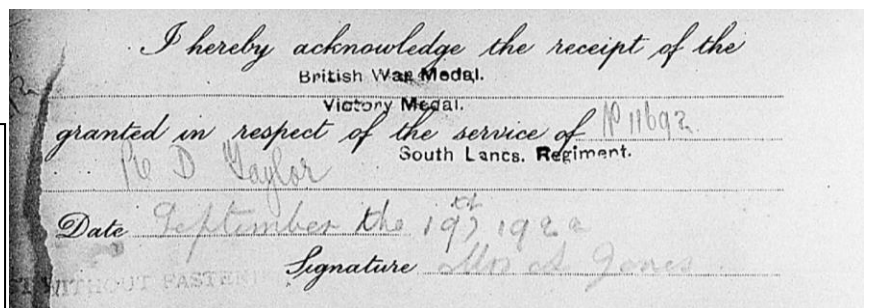 I hereby acknowledge the receipt of the
British War Medal.
Victory Medal.
granted in respect of the service of No 11692
South Lancs. Regiment.
Pte D Taylor
Date September the 19th 1922
Signature Mrs A Jones
WITHOUT FASTEN